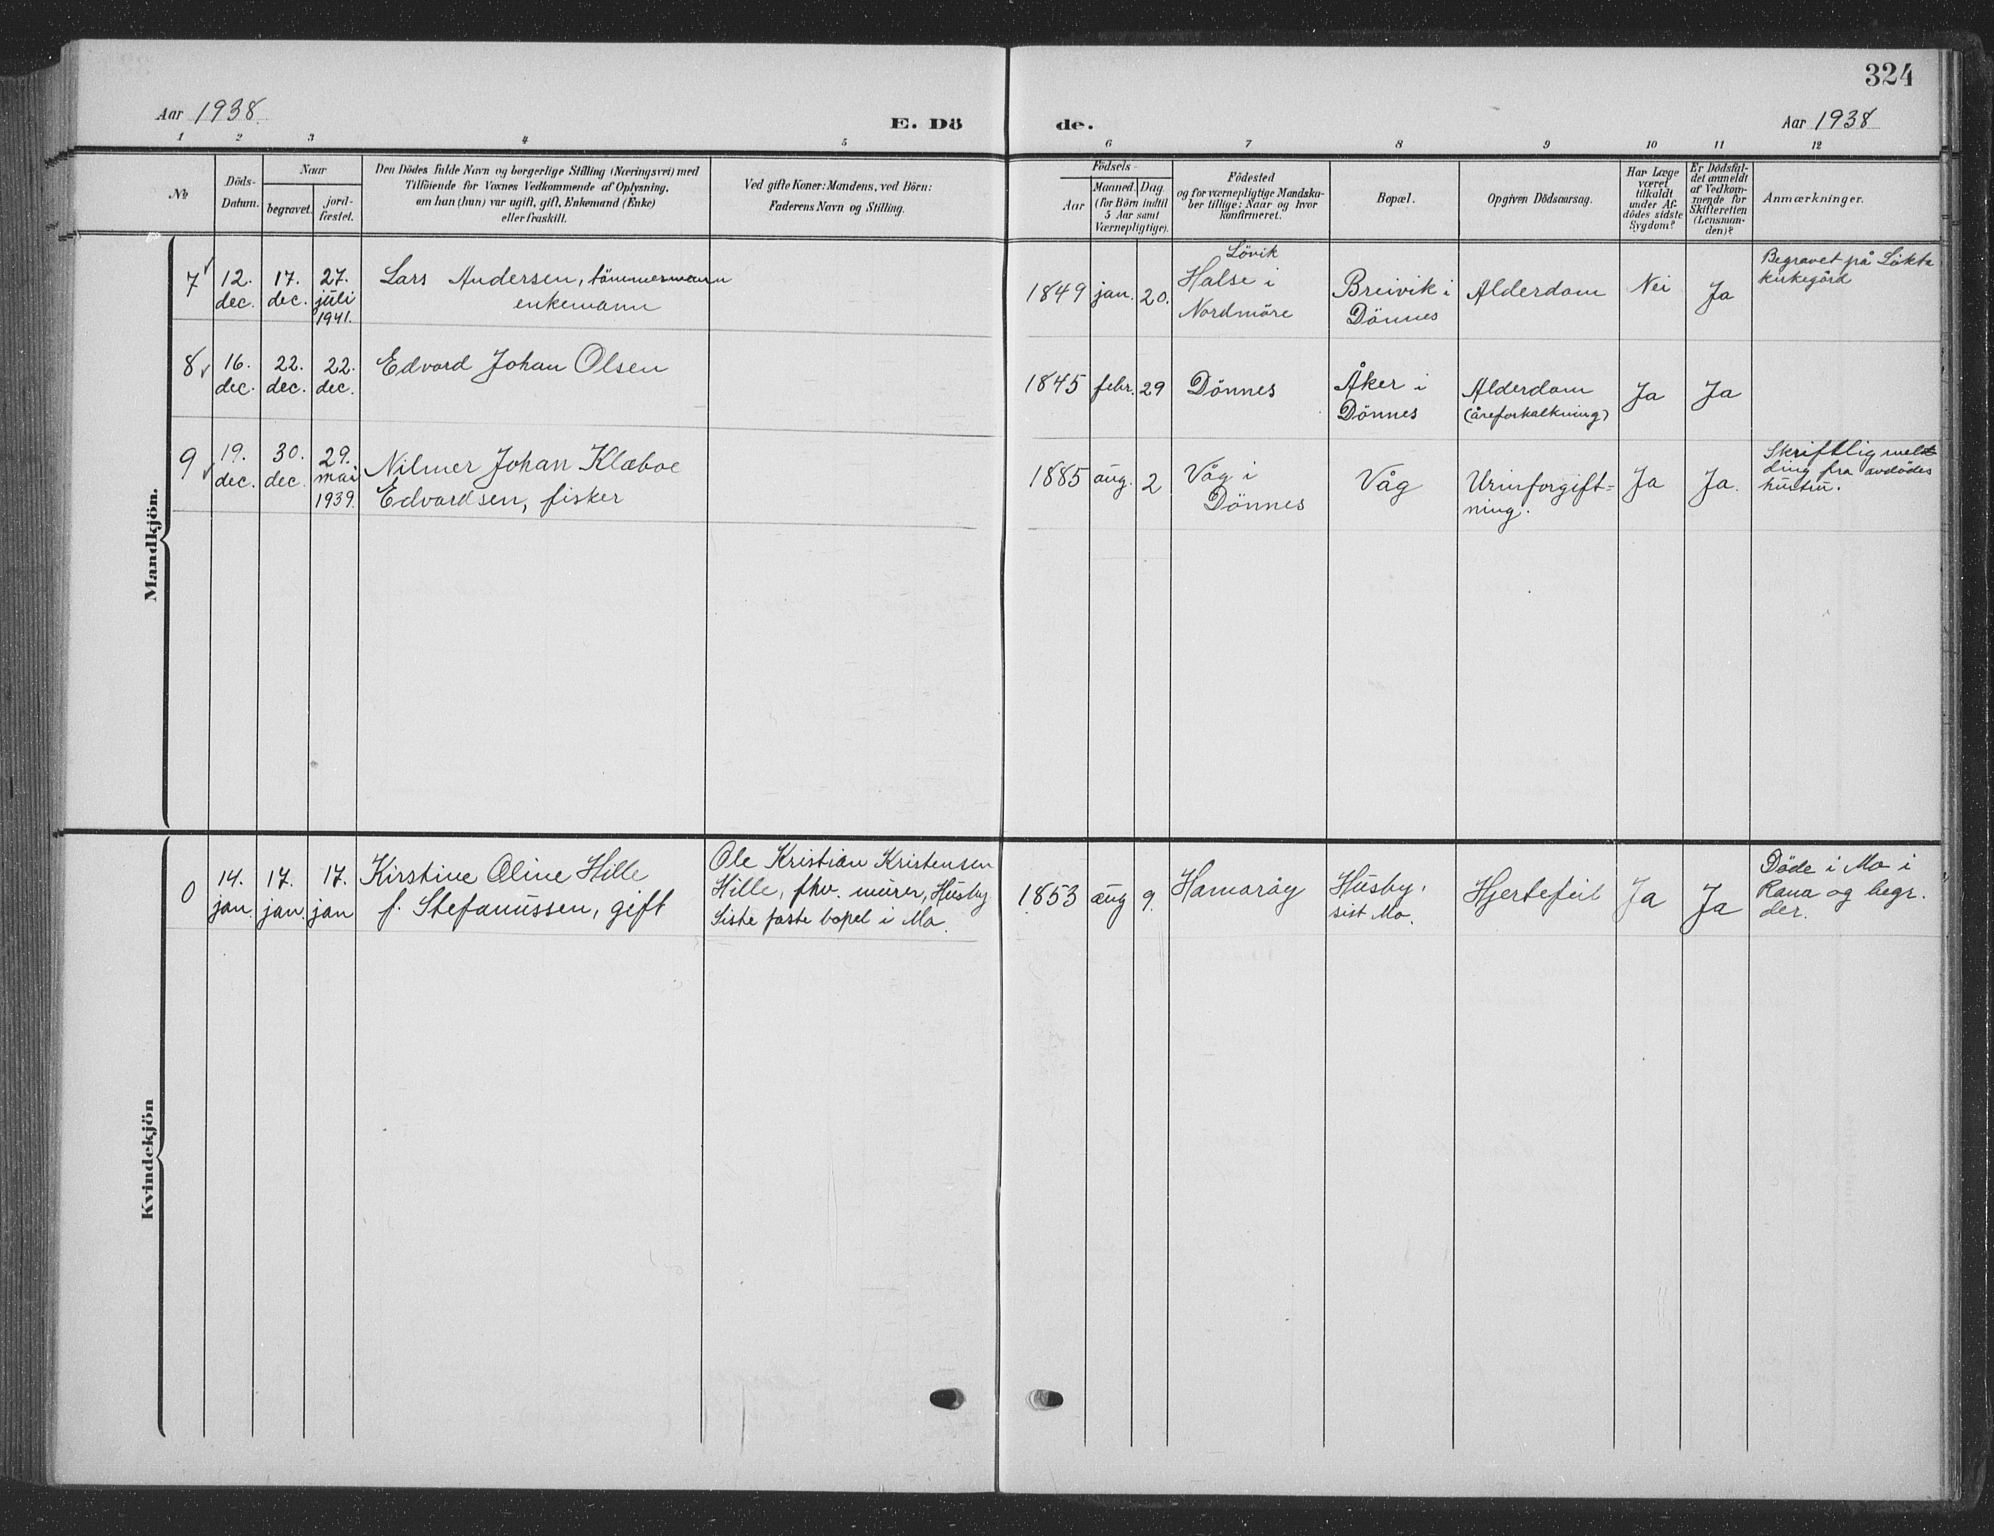 324
Aar 1938.
E. Dö de.
Aar 1938
1 2 3 4 5 6 7 8 9 10 11 12
No
Döds-
Datum.
Naar
begravet.
jord-
fæstet.
Den Dödes fulde Navn og borgerlige Stilling (Næringsvei) med
Tilföiende for Voxnes Vedkommende af Oplysning,
om han (hun) var ugift, gift, Enkemand (Enke)
eller fraskilt.
Ved gifte Koner: Mandens, ved Börn:
Faderens Navn og Stilling.
Födsels-
Aar
Maaned.
Dag
(for Börn indtil
5 Aar samt
Værnepligtige).
Födested
og for værnepligtige Mandska-
ber tillige: Naar og hvor
konfirmeret.
Bopæl.
Opgiven Dödsaarsag.
Har Læge
været
tilkaldt
under Af-
dödes sidste
Sygdom?
Er Dödsfal-
det anmeldt
af Vedkom-
mende for
Skifteretten
(Lensman-
den)?
Anmærkninger.
Mandkjön.
7
12.
dec.
17.
dec.
27.
juli
1941.
Lars Andersen, tömmermann
enkemann
1849 jan. 20.
Lövik
Halse i
Nordmöre
Breivik i
Dönnes
Alderdom
Nei
Ja
Begravet på Lökta
kirkegård
8
16.
dec.
22.
dec.
22.
dec.
Edvard Johan Olsen
1845 febr. 29
Dönnes
Åker i
Dönnes
Alderdom
(åreforkalkning)
Ja
Ja
9
19.
dec.
30.
dec.
29.
mai
1939.
Nilmer Johan Klæboe
Edvardsen, fisker
1885 aug. 2
Våg i
Dönnes
Våg
Urinforgift-
ning.
Ja
Ja.
Skriftlig mel-
ding fra avdödes
hustru.
Kvindekjön
0
14.
jan.
17.
jan.
17.
jan
Kirstine Oline Hille
f. Stefanussen, gift
Ole Kristian Kristensen
Hille, fhv. murer, Husby
Siste faste bopel i Mo.
1853 aug 9.
Hamaröy
Husby,
sist Mo.
Hjertefeil
Ja
Ja
Döde i Mo i
Rana og begr.
der.